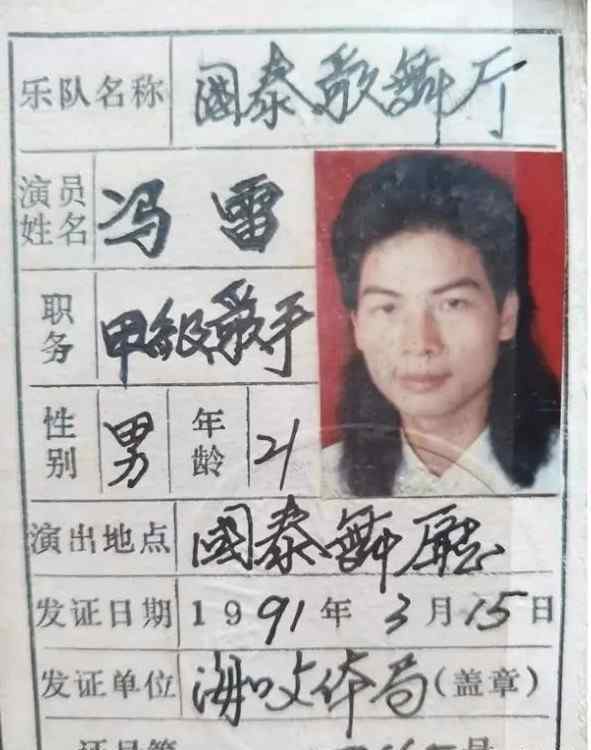 乐队名称 國泰歌舞厅
演员姓名 冯雷
职务 甲级歌手
性别 男 年龄 21
演出地点 國泰舞厅
发证日期 1991年3月15日
发证单位 海口文体局(盖章)